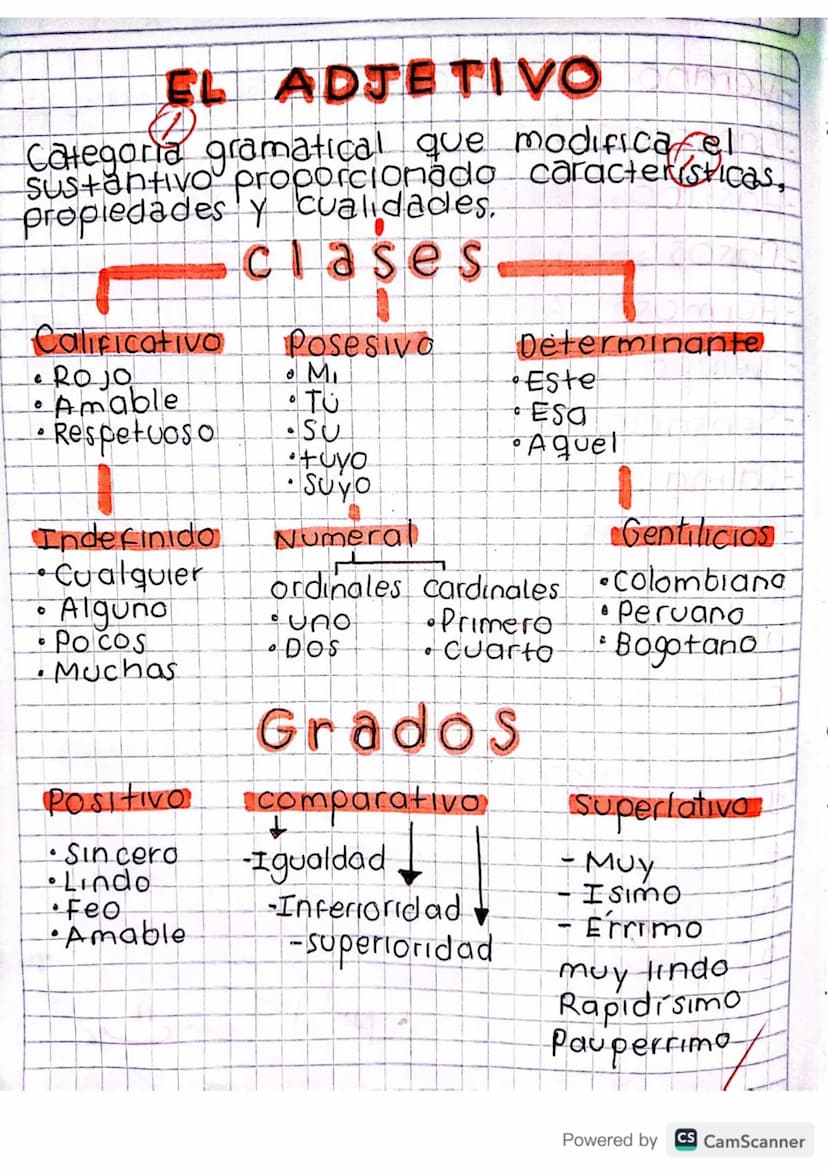 EL ADJETIVO
Categoría gramatical que modifica el
sustantivo proporcionado características,
propiedades y cualidades.
clases
Calificativo
• Rojo
• Amable
• Respetuoso
Posesivo
• Mi
• Tú
• Su
• tuyo
• Suyo
Determinante
• Este
• Esa
• Aquel
Indefinido
• Cualquier
• Alguno
• Pocos
• Muchas
Numeral
ordinales cardinales
• uno
• Dos
• Primero
• cuarto
Gentilicios
• colombiano
• Peruano
• Bogotano
Grados
Positivo
• Sincero
• Lindo
• Feo
• Amable
comparativo
- Igualdad
- Inferioridad
- superioridad
superlativo
- Muy
- Isimo
- Érrimo
muy lindo
Rapidísimo
Pauperrimo
Powered by CS CamScanner